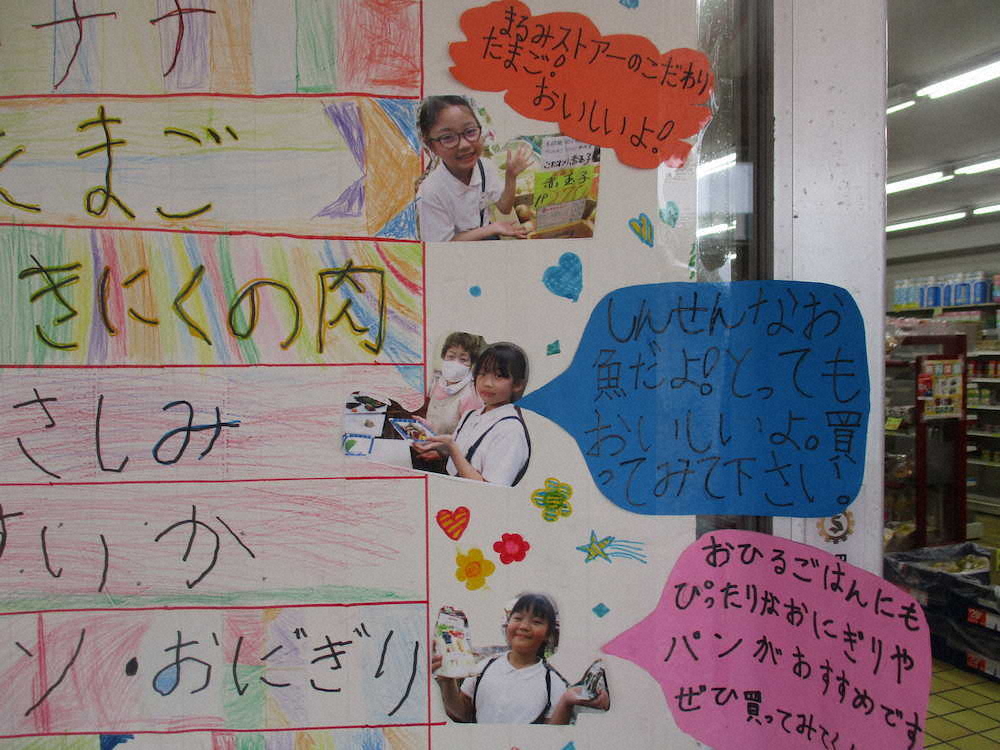 ナナ
たまご
きにくの肉
さしみ
すいか
ン・おにぎり
まるみストアーのこだわり
たまご。
おいしいよ!
赤玉子
しんせんなお
魚だよ!とっても
おいしいよ。買
ってみて下さい。
おひるごはんにも
ぴったりなおにぎりや
パンがおすすめです
ぜひ買ってみてく